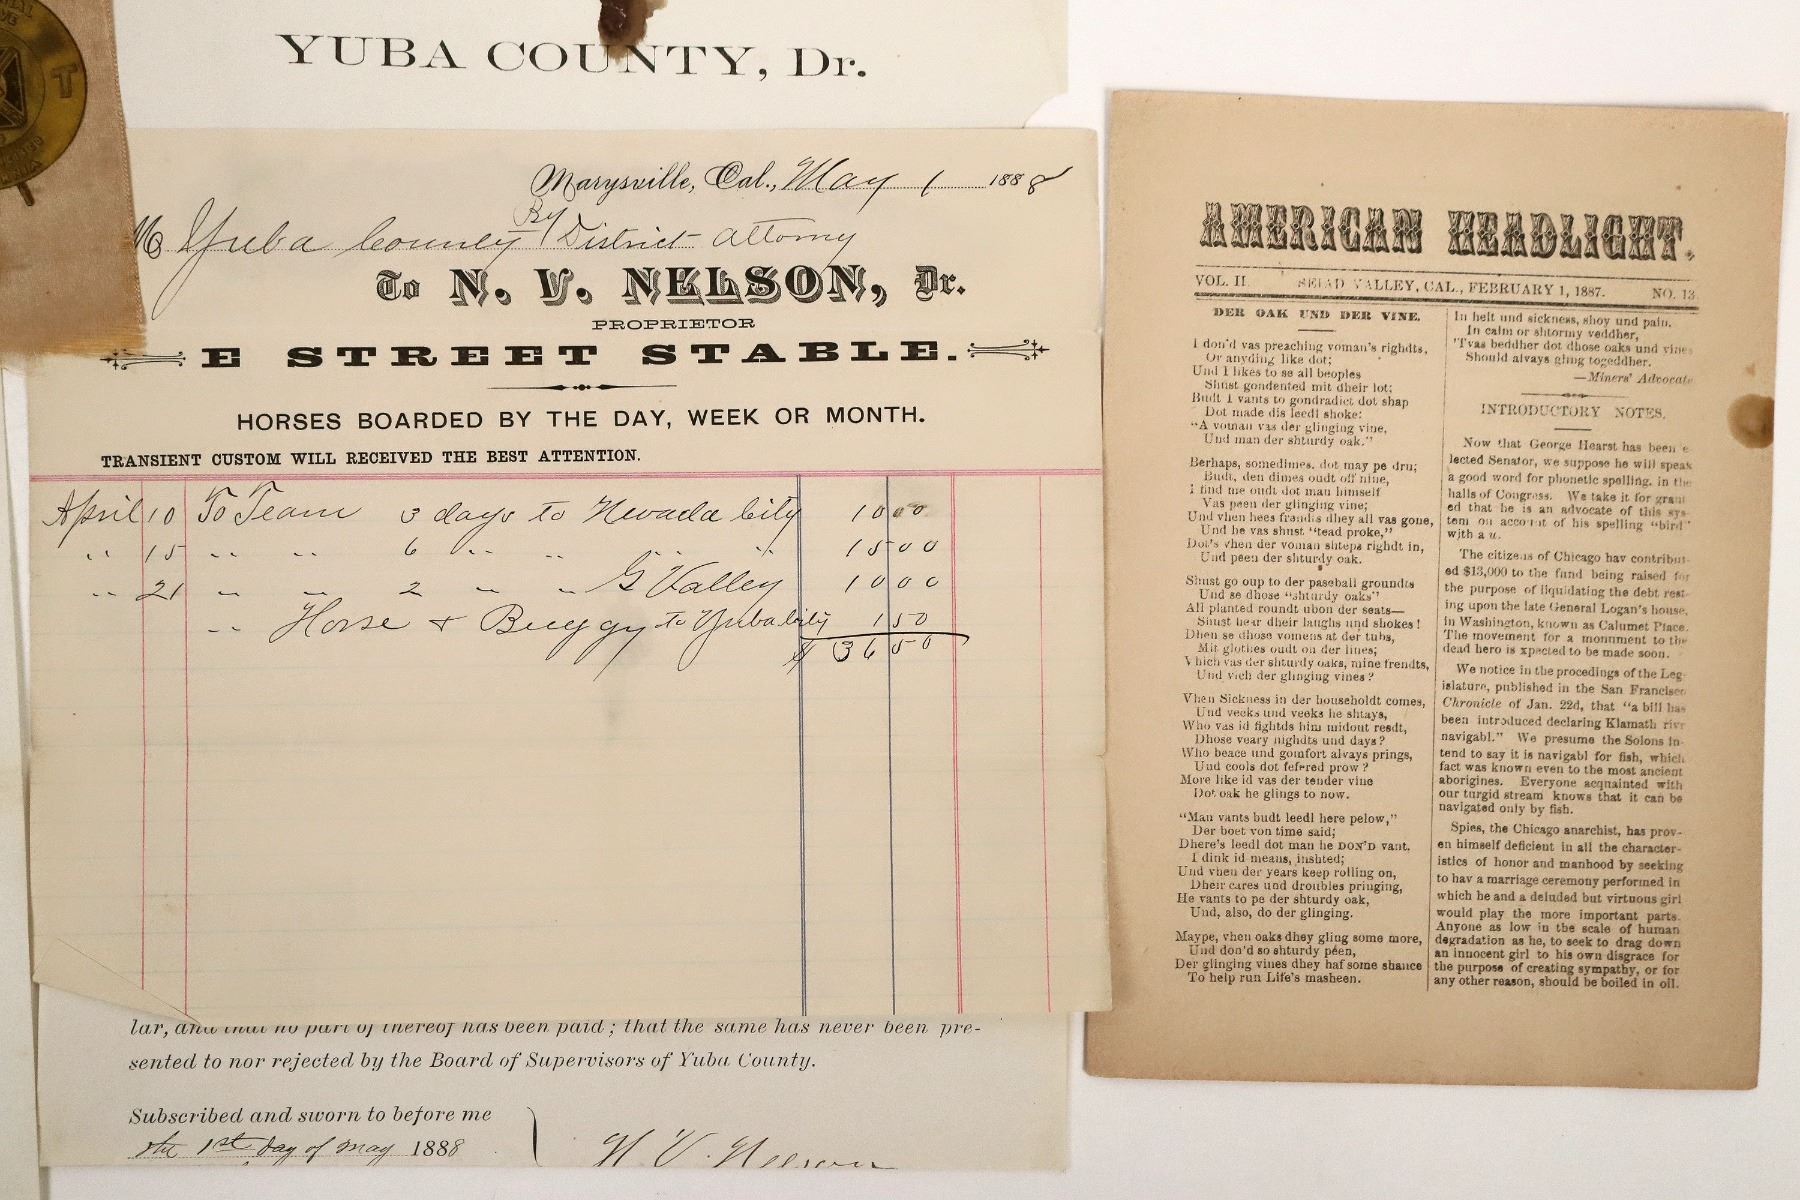 T
YUBA COUNTY, Dr.
Marysville, Cal., May 1 1888
M Yuba County By District Attorny
To N. V. NELSON, Dr.
PROPRIETOR
E STREET STABLE.
HORSES BOARDED BY THE DAY, WEEK OR MONTH.
TRANSIENT CUSTOM WILL RECEIVED THE BEST ATTENTION.
April 10 To Team 3 days to Nevada City 10 00
" 15 " " 6 " " " " 15 00
" 21 " " 2 " " G Valley 10 00
" Horse & Buggy to Yuba City 1 50
$ 36 50
lar, and that no part of thereof has been paid ; that the same has never been pre-
sented to nor rejected by the Board of Supervisors of Yuba County.
Subscribed and sworn to before me
the 1st day of May 1888
N. V. Nelson
AMERICAN HEADLIGHT.
VOL. II. SEIAD VALLEY, CAL., FEBRUARY 1, 1887. NO. 13.
DER OAK UND DER VINE.
I don'd vas preaching voman's righdts,
Or anyding like dot;
Und I likes to se all beoples
Shust gondented mit dheir lot;
Budt I vants to gondradict dot shap
Dot made dis leedl shoke:
"A voman vas der glinging vine,
Und man der shturdy oak."
Berhaps, somedimes, dot may pe dru;
Budt, den dimes oudt off nine,
I find me oudt dot man himself
Vas peen der glinging vine;
Und vhen hees frendts dhey all vas gone,
Und he vas shust "tead proke,"
Dot's vhen der voman shteps righdt in,
Und peen der shturdy oak.
Shust go oup to der paseball groundts
Und se dhose "shturdy oaks"
All planted roundt ubon der seats—
Shust hear dheir laughs und shokes!
Dhen se dhose vomens at der tubs,
Mit glothes oudt on der lines;
Vhich vas der shturdy oaks, mine frendts,
Und vich der glinging vines?
Vhen Sickness in der householdt comes,
Und veeks und veeks he shtays,
Who vas id fightds him midout resdt,
Dhose veary nighdts und days?
Who beace und gomfort alvays prings,
Und cools dot fefered prow?
More like id vas der tender vine
Dot oak he glings to now.
"Man vants budt leedl here pelow,"
Der boet von time said;
Dhere's leedl dot man he DON'D vant,
I dink id means, inshted;
Und vhen der years keep rolling on,
Dheir cares und droubles pringing,
He vants to pe der shturdy oak,
Und, also, do der glinging.
Maype, vhen oaks dhey gling some more,
Und don'd so shturdy péen,
Der glinging vines dhey haf some shance
To help run Life's masheen.
In helt und sickness, shoy und pain,
In calm or shtormy veddher,
'Tvas beddher dot dhose oaks und vines
Should alvays gling togeddher.
—Miners' Advocate
INTRODUCTORY NOTES.
Now that George Hearst has been e
lected Senator, we suppose he will speak
a good word for phonetic spelling, in the
halls of Congress. We take it for grant
ed that he is an advocate of this sys-
tem on account of his spelling "bird"
with a u.
The citizens of Chicago hav contribut-
ed $13,000 to the fund being raised for
the purpose of liquidating the debt rest-
ing upon the late General Logan's house,
in Washington, known as Calumet Place.
The movement for a monument to the
dead hero is xpected to be made soon.
We notice in the procedings of the Leg-
islature, published in the San Francisco
Chronicle of Jan. 22d, that "a bill has
been introduced declaring Klamath rivr
navigabl." We presume the Solons in-
tend to say it is navigabl for fish, which
fact was known even to the most ancient
aborigines. Everyone acquainted with
our turgid stream knows that it can be
navigated only by fish.
Spies, the Chicago anarchist, has prov-
en himself deficient in all the character-
istics of honor and manhood by seeking
to hav a marriage ceremony performed in
which he and a deluded but virtuous girl
would play the more important parts.
Anyone as low in the scale of human
degradation as he, to seek to drag down
an innocent girl to his own disgrace for
the purpose of creating sympathy, or for
any other reason, should be boiled in oil.